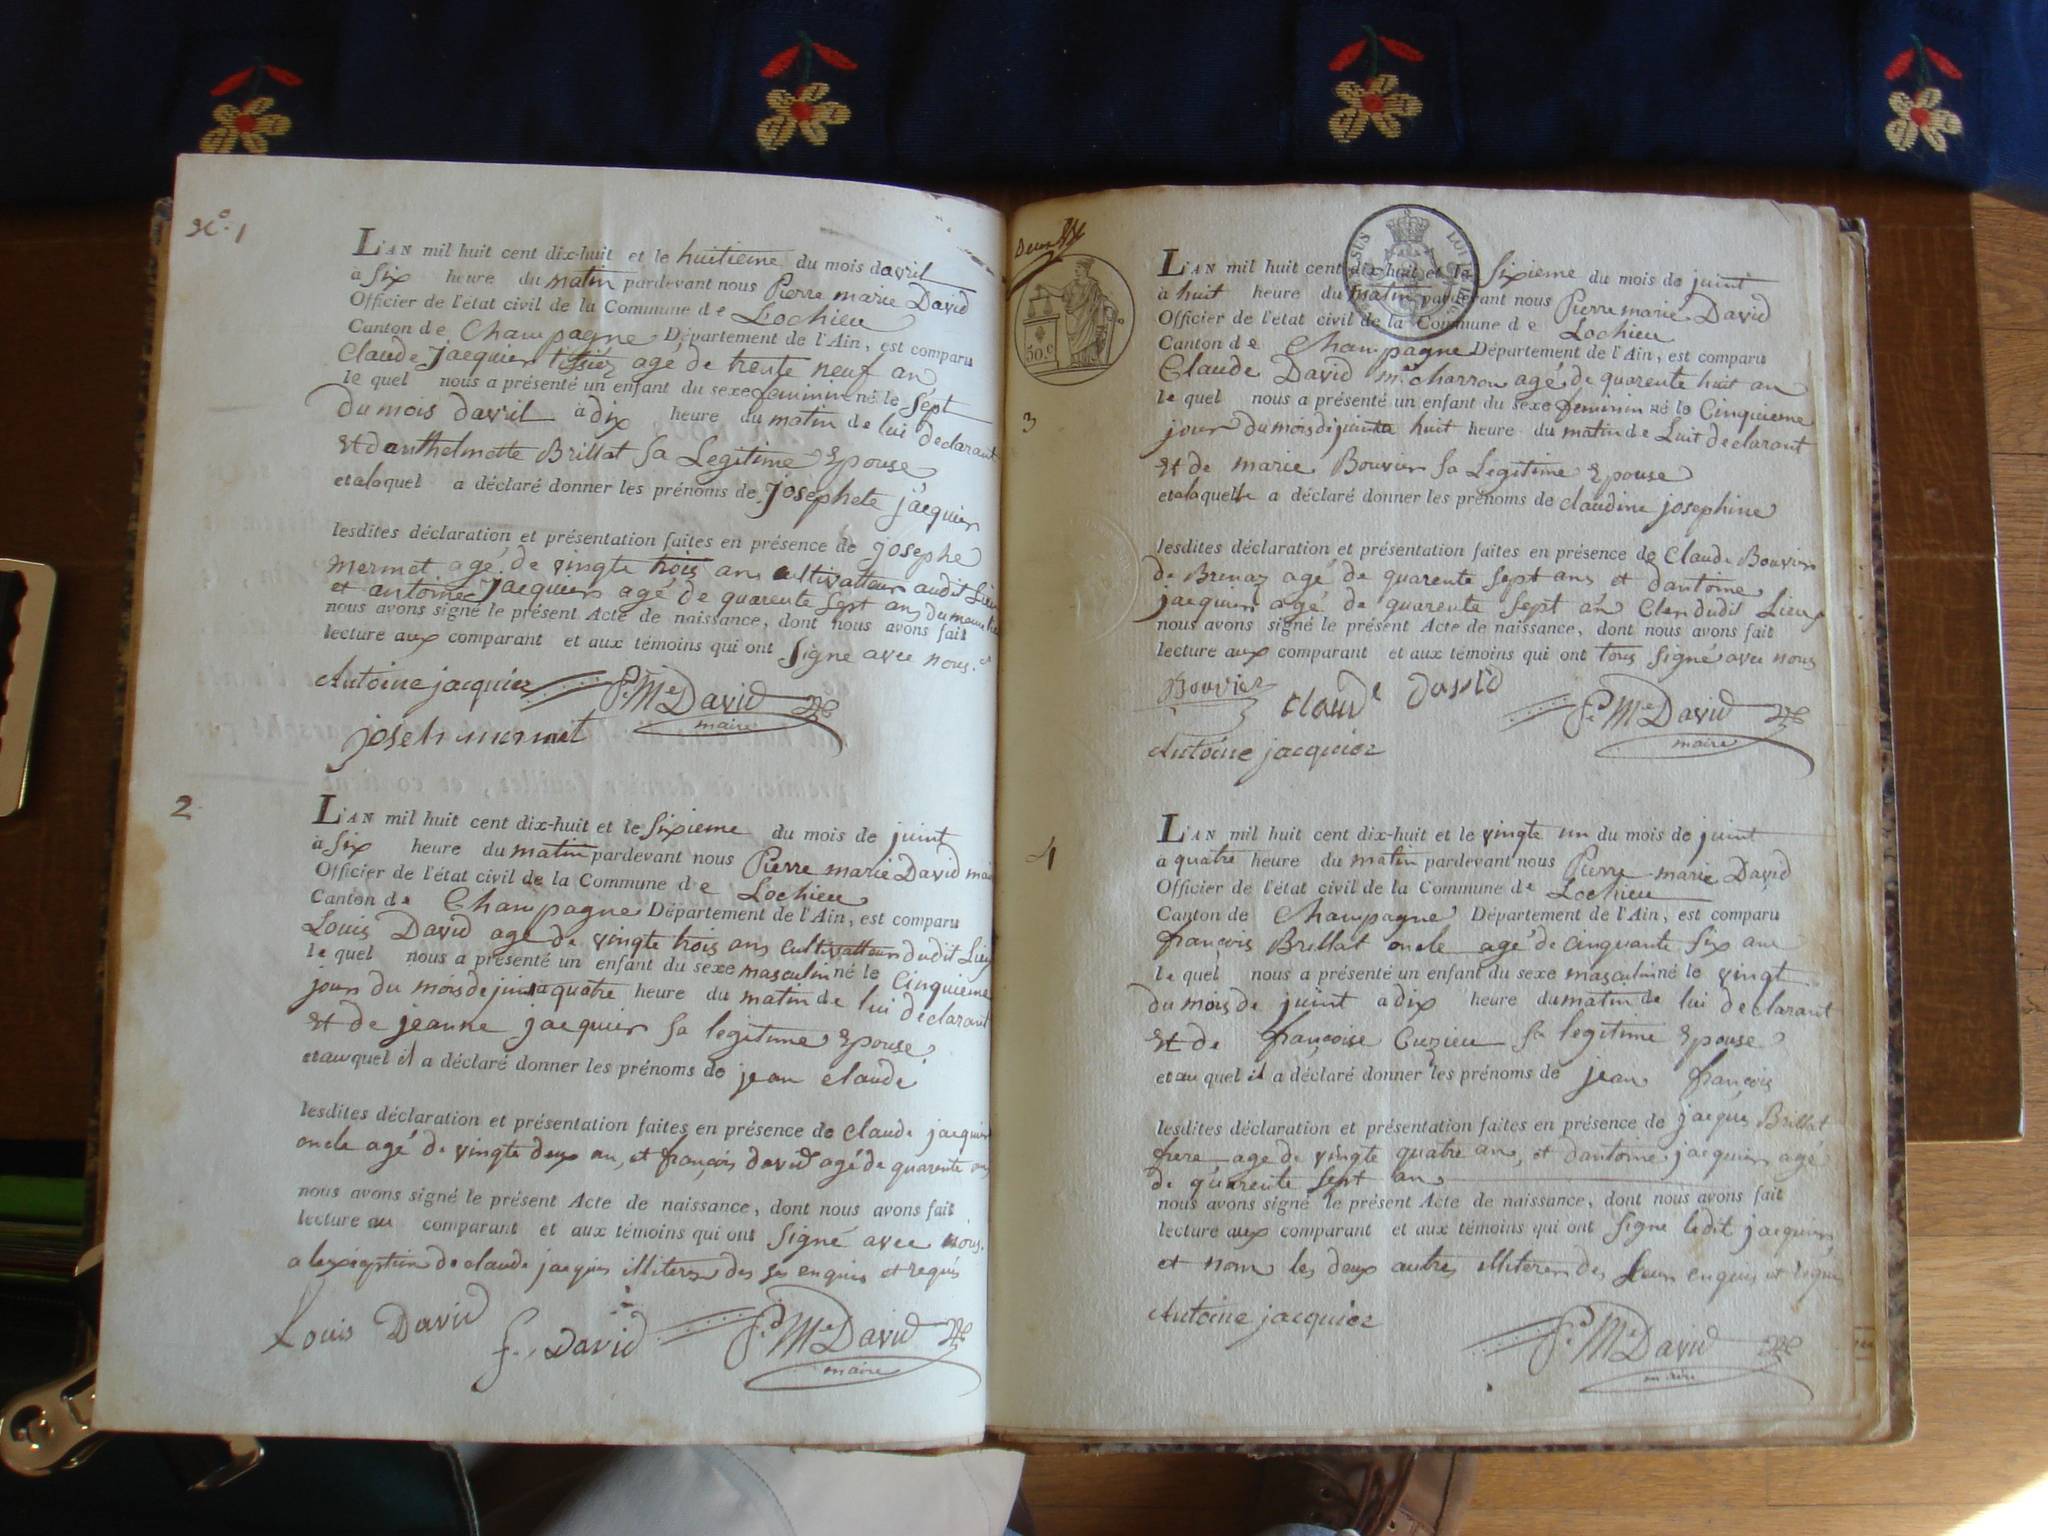 N.º 1
L'AN mil huit cent dix-huit et le huitieme du mois davril
à six heure du matin pardevant nous Pierre marie David
Officier de l'état civil de la Commune de Lochieu
Canton de Champagne Département de l'Ain, est comparu
Claude jacquier tissier agé de trente neuf an
le quel nous a présenté un enfant du sexe feminin né le Sept
du mois davril à dix heure du matin de lui declarant
Et danthelmette Brillat sa Legitime Epouse
et a laquel a déclaré donner les prénoms de Josephete jacquier
lesdites déclaration et présentation faites en présence de josephe
mermet agé de vingte trois ans cultivatteur audit Lieu
et antoine Jacquier agé de quarente sept ans du meme lieu
nous avons signé le présent Acte de naissance, dont nous avons fait
lecture aux comparant et aux témoins qui ont signe avec nous.
Antoine jacquier P.re M.e David
maire
joseh mermet
2
L'AN mil huit cent dix-huit et le sixieme du mois de juint
à six heure du matin pardevant nous Pierre marie David mai
Officier de l'état civil de la Commune de Lochieu
Canton de Champagne Département de l'Ain, est comparu
Louis David age de vingte trois ans cultivatteur dudit Lieu
le quel nous a présenté un enfant du sexe masculin né le Cinquieme
jour du mois de juin a quatre heure du matin de lui declarant
Et de jeanne jacquier sa legitime Epouse
et au quel il a déclaré donner les prénoms de jean claude
lesdites déclaration et présentation faites en présence de claude jacquier
oncle agé de vingte deux an, et françois david agé de quarente an
nous avons signé le présent Acte de naissance, dont nous avons fait
lecture au comparant et aux témoins qui ont signé avec nous.
a lexception de claude jacquier illiteres des ce enquis et requis
Louis David f. David P.re M.e David
maire
50 c
3
L'AN mil huit cent dix-huit et le Sixieme du mois de juint
à huit heure du matin pardevant nous Pierre marie David
Officier de l'état civil de la Commune de Lochieu
Canton de Champagne Département de l'Ain, est comparu
Claude David m.e charron agé de quarente huit an
le quel nous a présenté un enfant du sexe feminin né le Cinquieme
jour du mois de juin a huit heure du matin de Luit declarant
Et de marie Bouvier sa Légitime Epouse
et a laquelle a déclaré donner les prénoms de claudine josephine
lesdites déclaration et présentation faites en présence de Claude Bouvier
de Brenaz agé de quarente sept ans et dantoine
jacquier agé de quarente sept an Clerc dudit Lieu
nous avons signé le présent Acte de naissance, dont nous avons fait
lecture aux comparant et aux témoins qui ont tous signé avec nous
Bouvier Claude David P.re M.e David
maire
Antoine jacquier
4
L'AN mil huit cent dix-huit et le vingte un du mois de juint
à quatre heure du matin pardevant nous Pierre marie David
Officier de l'état civil de la Commune de Lochieu
Canton de Champagne Département de l'Ain, est comparu
françois Brillat oncle agé de cinquante six ans
le quel nous a présenté un enfant du sexe masculin né le vingt
du mois de juint a dix heure du matin de lui declarant
Et de françoise Cuzieu sa legitime Epouse
et au quel il a déclaré donner les prénoms de jean françois
lesdites déclaration et présentation faites en présence de jacque Brillat
frere age de vingte quatre an, et dantoine jacquier agé
de quarente sept an
nous avons signé le présent Acte de naissance, dont nous avons fait
lecture aux comparant et aux témoins qui ont signe ledit jacquier
et nom les deux autres illiteres des leur enquis et requis
Antoine jacquier P.re M.e David
maire